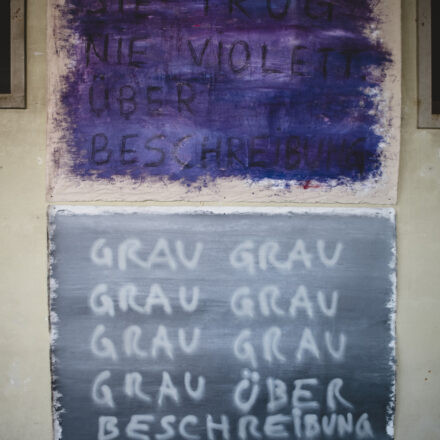 SIE TRUG
NIE VIOLETT
ÜBER
BESCHREIBUNG
GRAU GRAU
GRAU GRAU
GRAU GRAU
GRAU ÜBER
BESCHREIBUNG